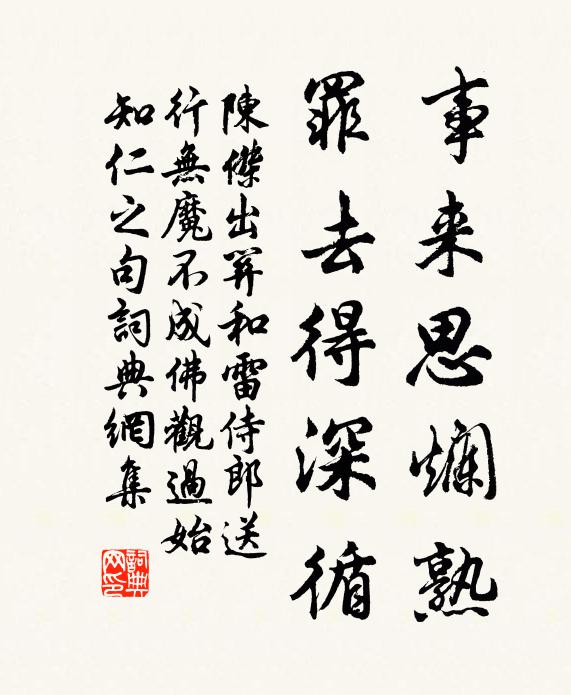 事来思爛熟
罪去得深循
陳傑出昇和雷侍郎送
行無魔不成佛觀過始
知仁之句詞典網集
詞典网印